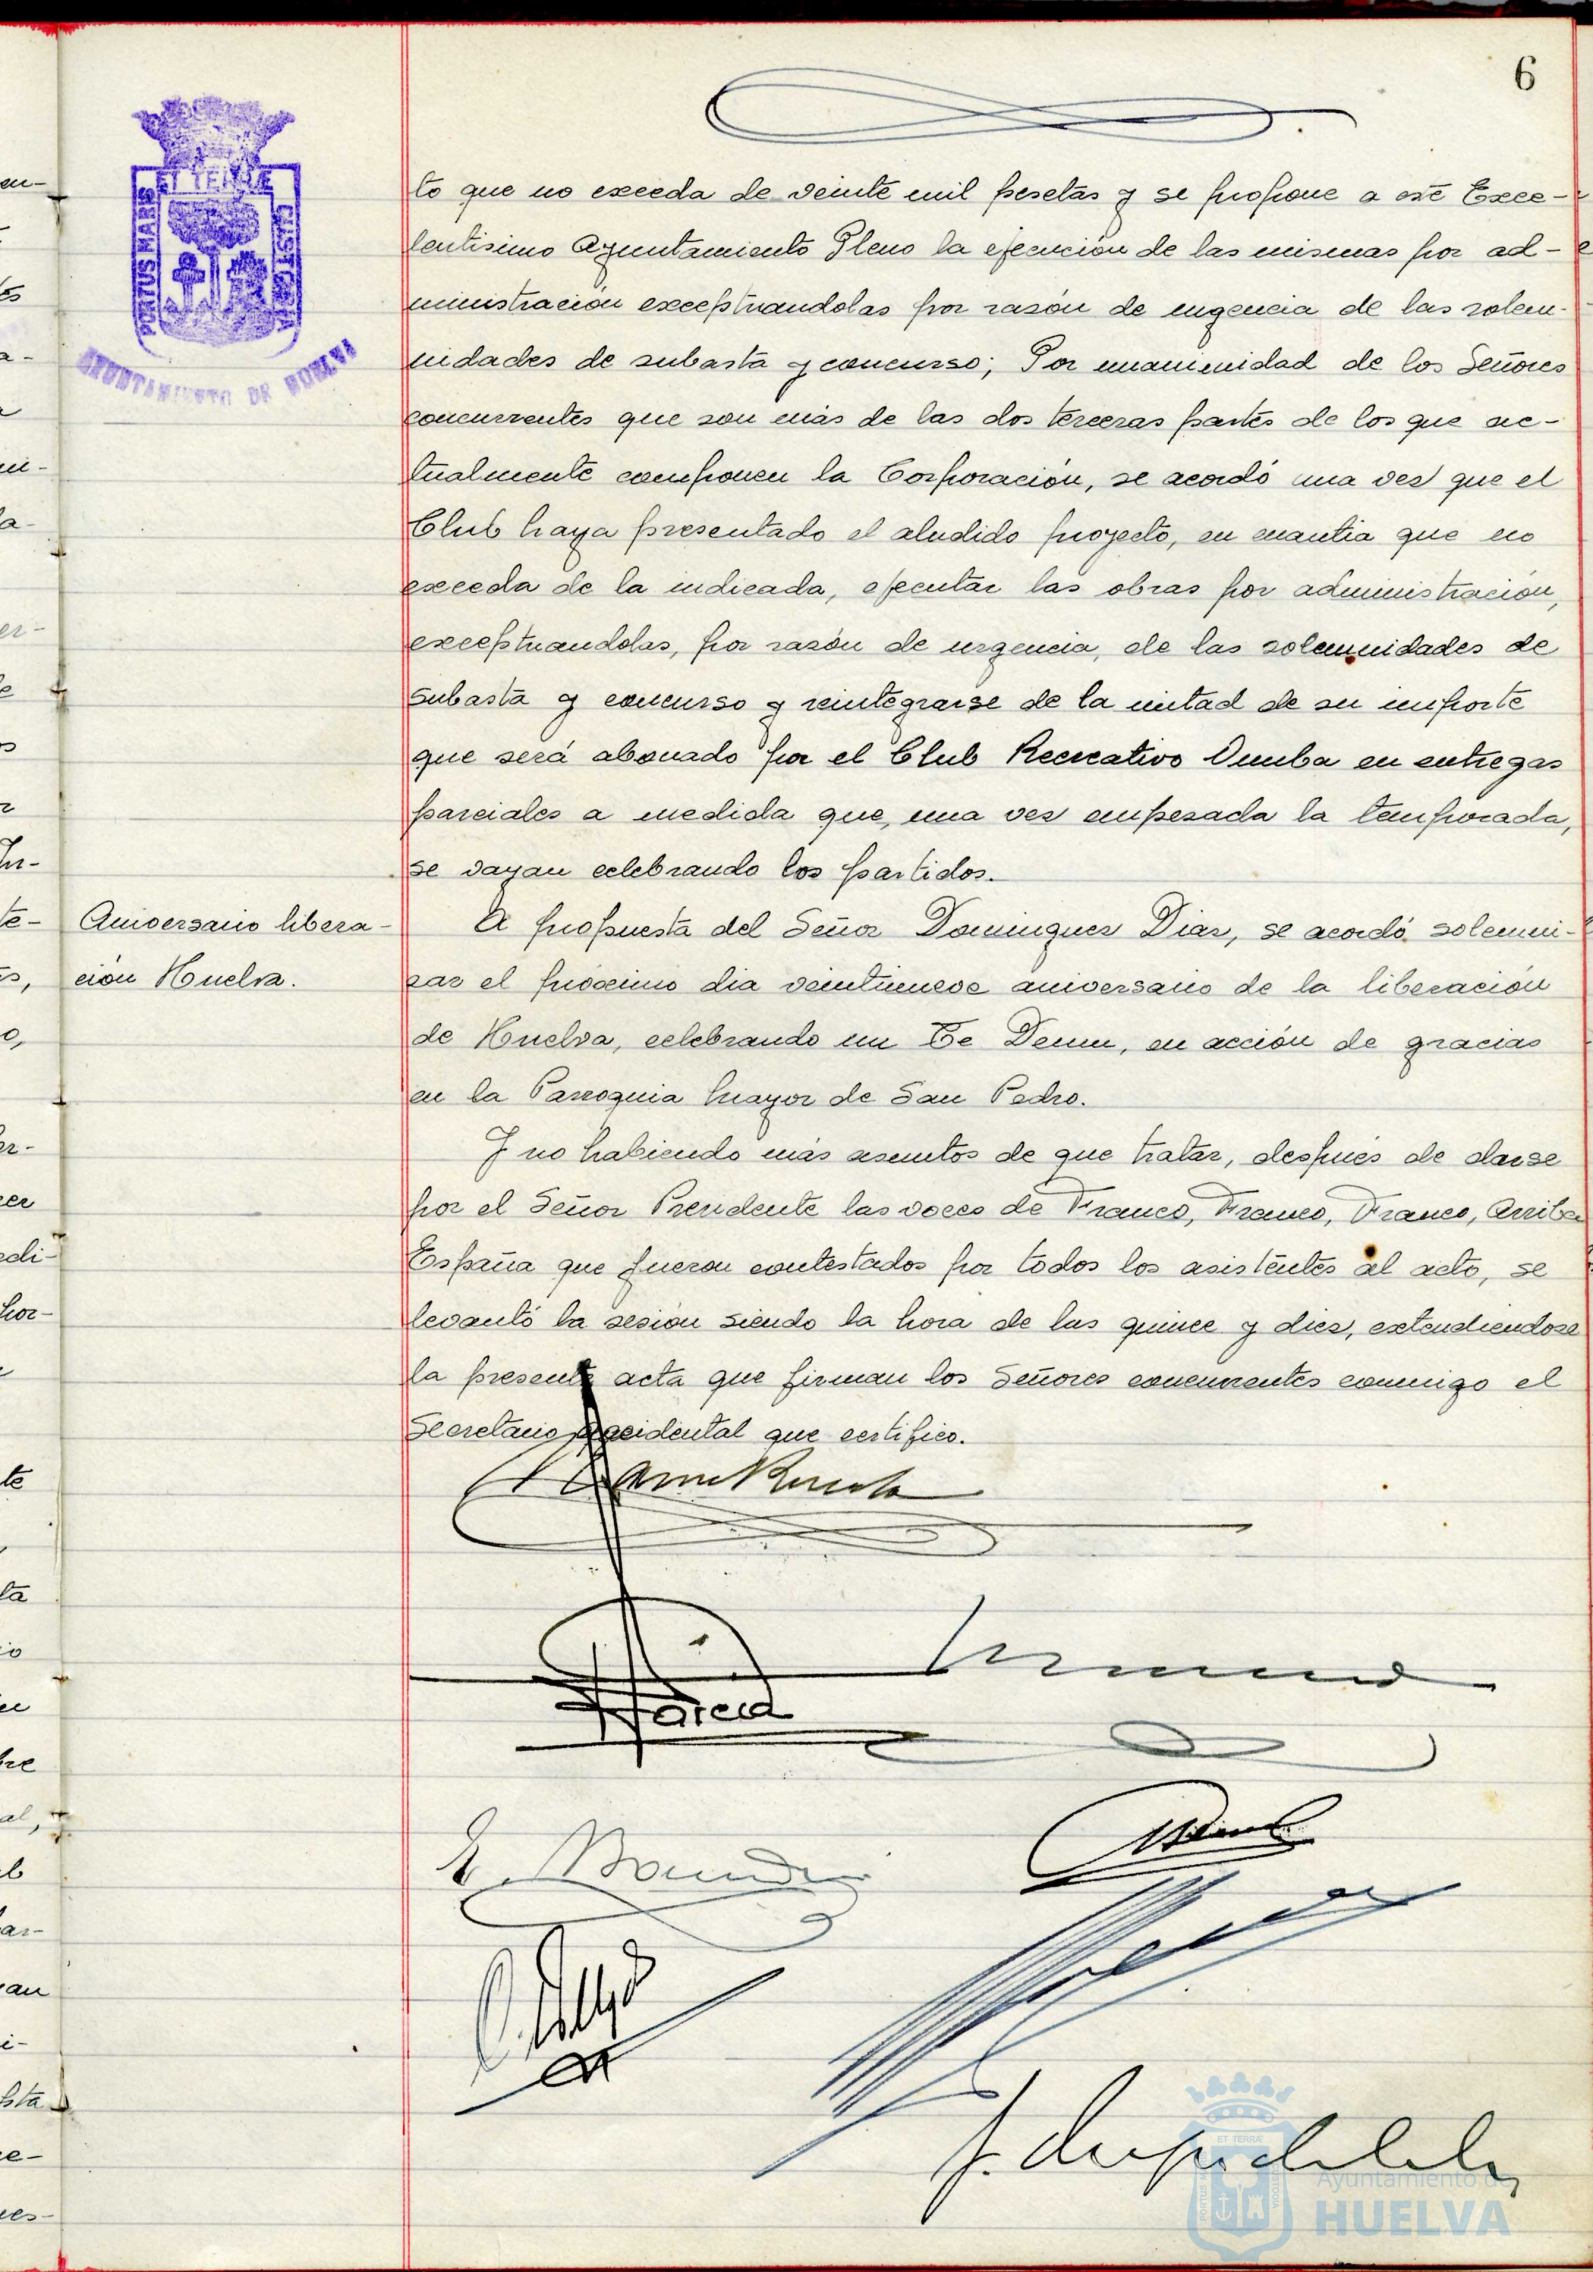 6
PORTUS MARIS
ET TERRÆ
CUSTODIA
AYUNTAMIENTO DE HUELVA
to que no exceda de veinte mil pesetas y se propone a este Exce-
lentisimo Ayuntamiento Pleno la ejecución de las mismas por ad-
ministración exceptuandolas por razón de urgencia de las solem-
nidades de subasta y concurso; Por unanimidad de los Señores
concurrentes que son más de las dos terceras partes de los que ac-
tualmente componen la Corporación, se acordó una vez que el
Club haya presentado el aludido proyecto, en cuantia que no
exceda de la indicada, ejecutar las obras por administración,
exceptuandolas, por razón de urgencia, de las solemnidades de
subasta y concurso y reintegrarse de la mitad de su importe
que será abonado por el Club Recreativo Onuba en entregas
parciales a medida que, una vez empezada la temporada,
se vayan celebrando los partidos.
Aniversario libera-
ción Huelva.
A propuesta del Señor Dominguez Diaz, se acordó solemni-
zar el próximo dia veintinueve aniversario de la liberación
de Huelva, celebrando un Te Deum, en acción de gracias
en la Parroquia Mayor de San Pedro.
Y no habiendo más asuntos de que tratar, después de darse
por el Señor Presidente las voces de Franco, Franco, Franco, Arriba
España que fueron contestados por todos los asistentes al acto, se
levantó la sesión siendo la hora de las quince y diez, extendiendose
la presente acta que firman los Señores concurrentes conmigo el
Secretario accidental que certifico.
Garcia
Ayuntamiento de
HUELVA